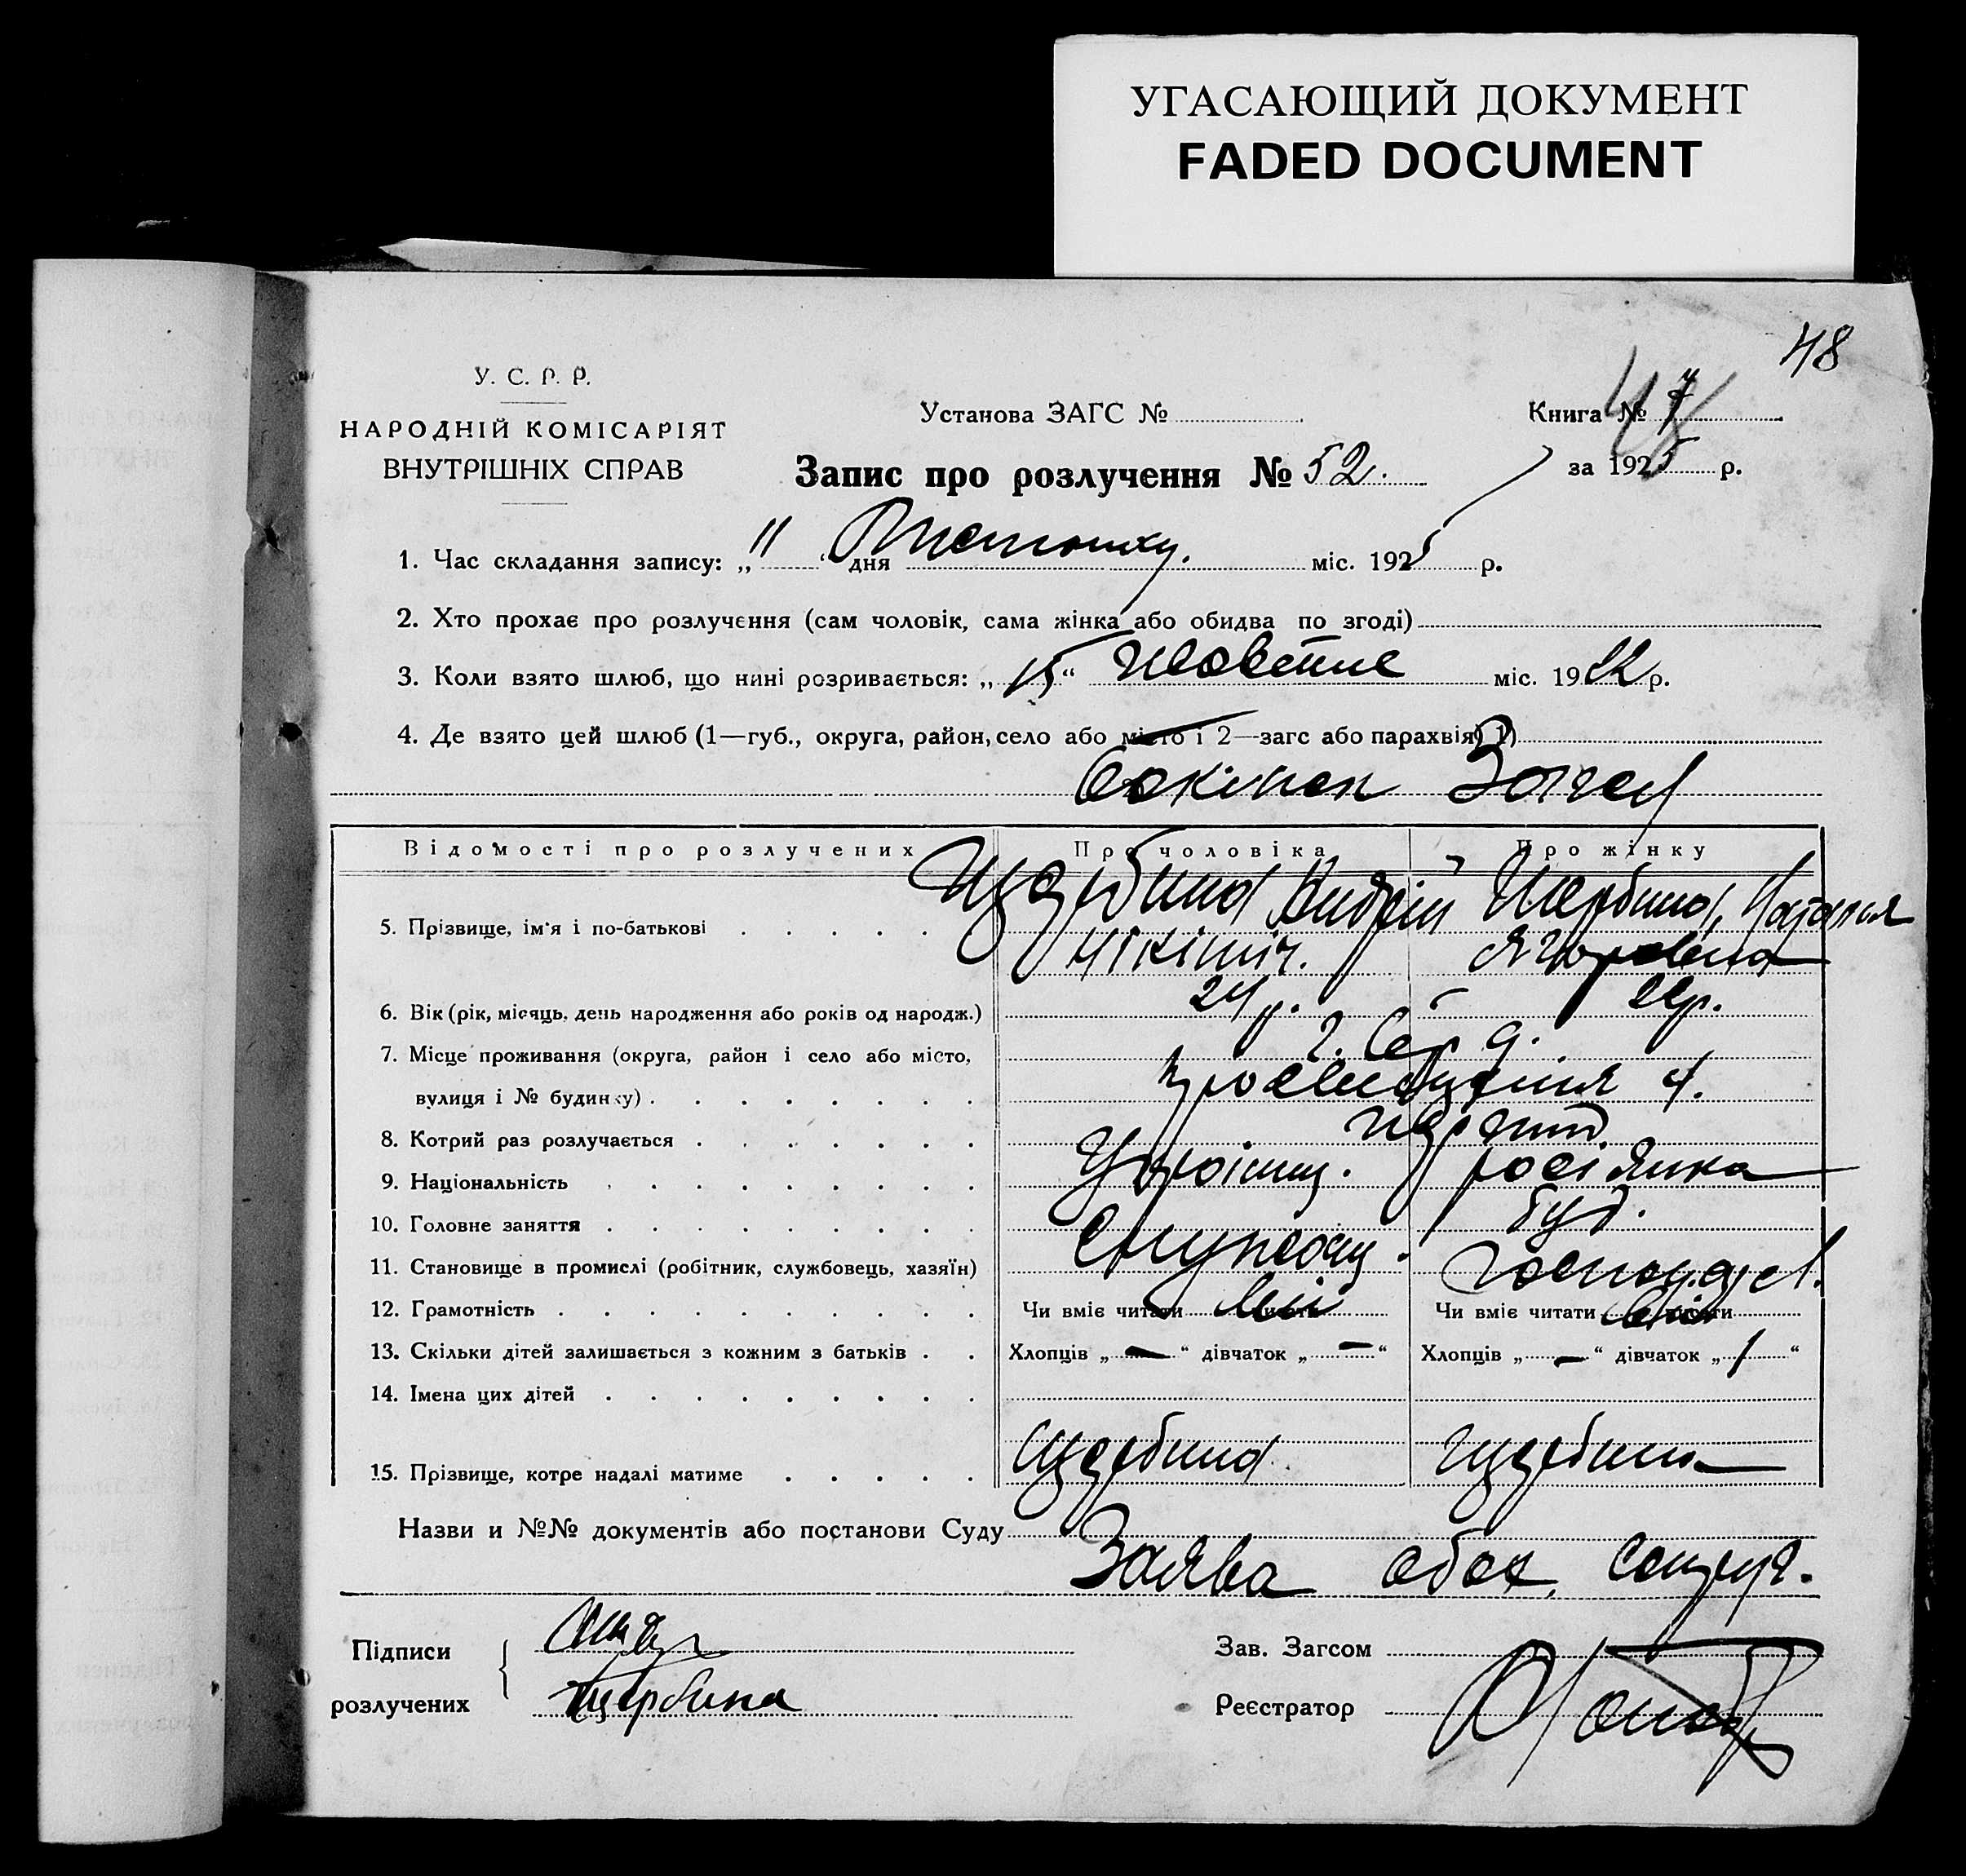 УГАСАЮЩИЙ ДОКУМЕНТ
FADED DOCUMENT
48
У. С. Р. Р.
НАРОДНІЙ КОМІСАРІЯТ
ВНУТРІШНІХ СПРАВ
Установа ЗАГС №
Книга № 7
за 1925 р.
Запис про розлучення № 52.
1. Час складання запису: „11“ дня міс. 1925 р.
2. Хто прохає про розлучення (сам чоловік, сама жінка або обидва по згоді)
3. Коли взято шлюб, що нині розривається: „15“ Жовтня міс. 1922 р.
4. Де взято цей шлюб (1—губ., округа, район, село або місто і 2—загс або парахвія) 1)
Загсі
Відомості про розлучених
Про чоловіка
Про жінку
5. Прізвище, ім'я і по-батькові Щербина Андрій Щербина, Наталья
Нікітіч.
6. Вік (рік, місяць, день народження або років од народж.) 24 р. 22 р.
7. Місце проживання (округа, район і село або місто,
вулиця і № будинку)
8. Котрий раз розлучається
9. Національність росіянка
10. Головне заняття
11. Становище в промислі (робітник, службовець, хазяїн)
12. Грамотність Чи вміє читати писати Чи вміє читати писати
13. Скільки дітей залишається з кожним з батьків Хлопців „—“ дівчаток „—“ Хлопців „—“ дівчаток „1“
14. Імена цих дітей
15. Прізвище, котре надалі матиме Щербина Щербина
Назви и №№ документів або постанови Суду
Заява обох
Підписи
розлучених Щербина
Зав. Загсом
Реєстратор